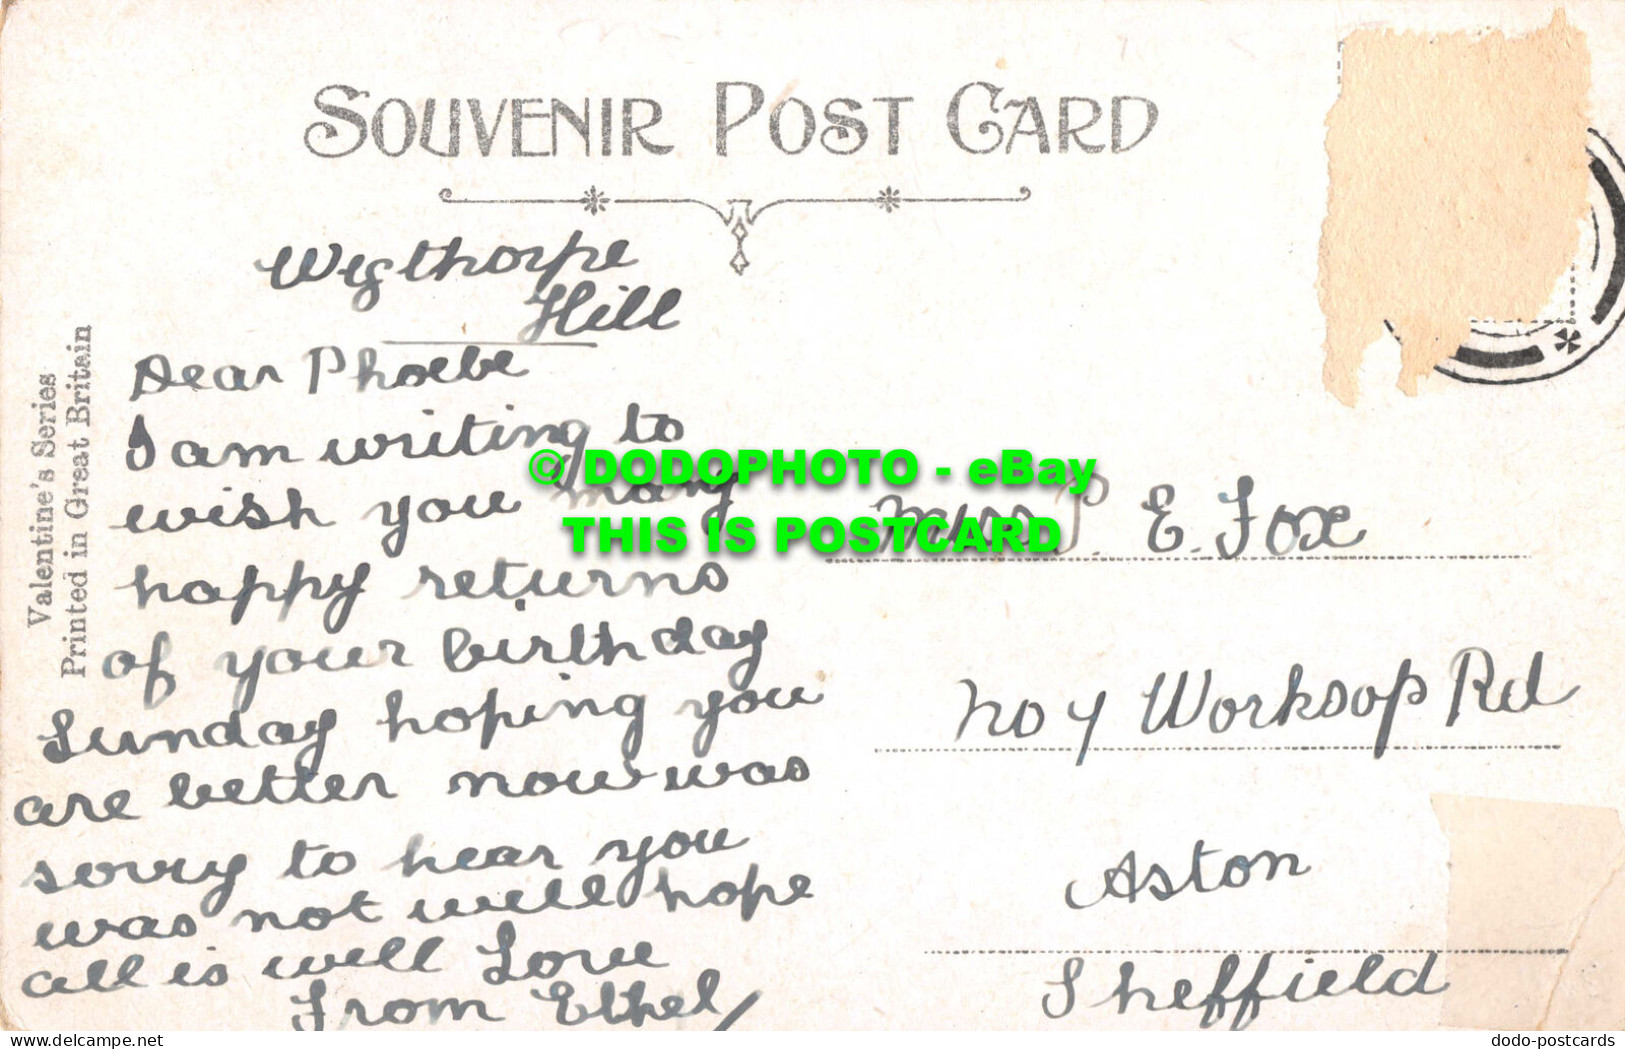 SOUVENIR POST CARD
Wigthorpe
Hill
Dear Phoebe
I am writing to
wish you many
happy returns
of your birthday
Sunday hoping you
are better now was
sorry to hear you
was not well hope
all is well Love
From Ethel
Miss P. E. Fox
No 4 Worksop Rd
Aston
Sheffield
Valentine's Series
Printed in Great Britain
© DODOPHOTO - eBay
THIS IS POSTCARD
www.delcampe.net
dodo-postcards